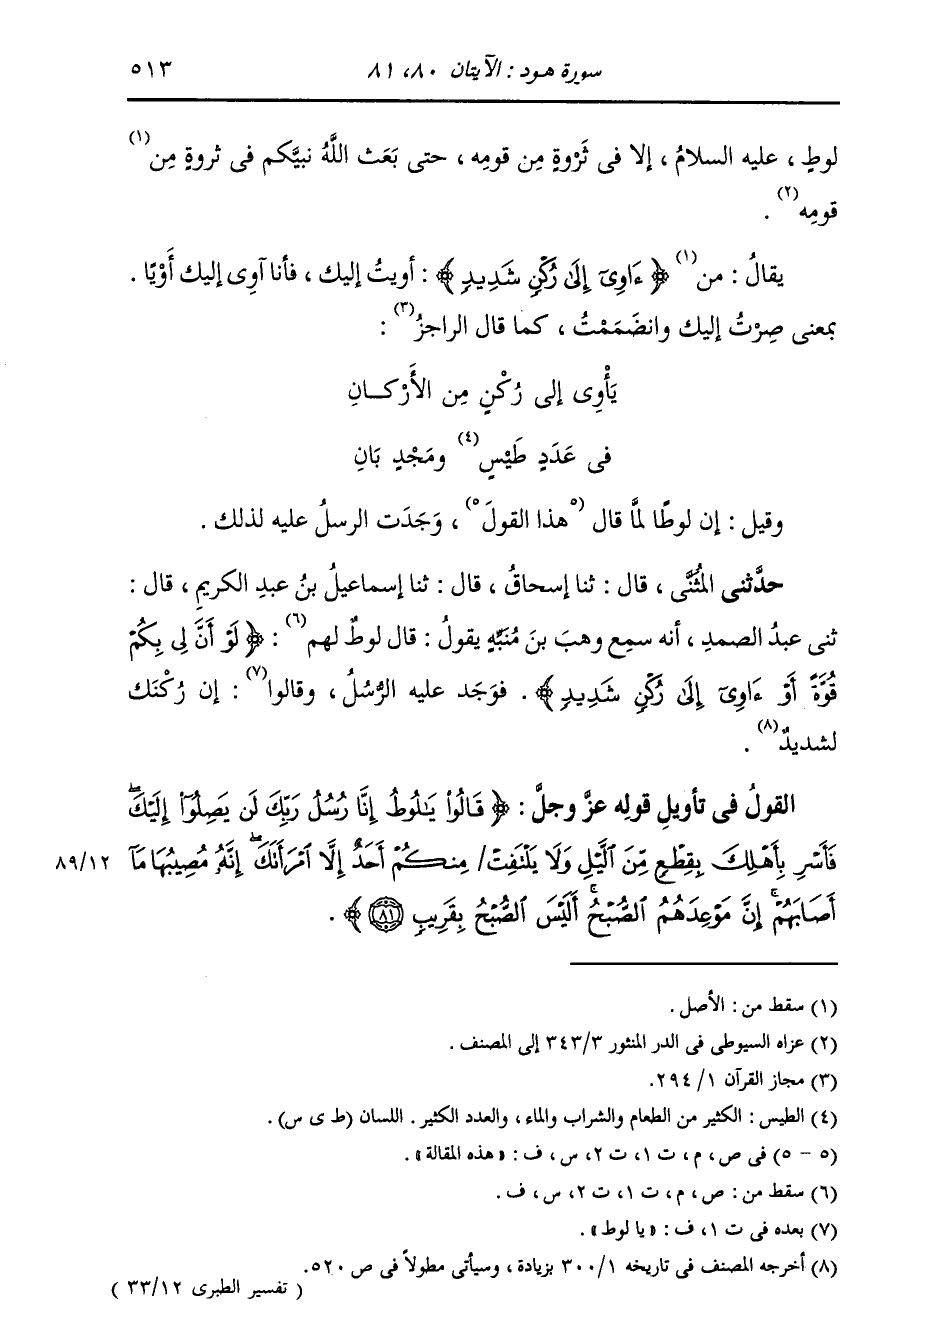 سورة هود : الآيتان ٨٠، ٨١ ٥١٣
لوطٍ ، عليه السلامُ ، إلا فى ثَرْوةٍ مِن قومِه ، حتى بَعَث اللَّهُ نبيَّكم فى ثروةٍ مِن(١)
قومِه(٢) .
يقالُ : من(١) ﴿ ءَاوِىٓ إِلَىٰ رُكْنٍ شَدِيدٍ ﴾ : أويتُ إليك ، فأنا آوِى إليك أَوْيًا .
بمعنى صِرْتُ إليك وانضَمَمْتُ ، كما قال الراجزُ(٣) :
يَأْوِى إلى رُكْنٍ مِن الأَرْكــانِ
فى عَدَدٍ طَيْسٍ(٤) ومَجْدٍ بَانِ
وقيل : إن لوطًا لمَّا قال (٥هذا القولَ٥) ، وَجَدَت الرسلُ عليه لذلك .
حدَّثنى المُثَنَّى ، قال : ثنا إسحاقُ ، قال : ثنا إسماعيلُ بنُ عبدِ الكريمِ ، قال :
ثنى عبدُ الصمدِ ، أنه سمِع وهبَ بنَ مُنَبِّهٍ يقولُ : قال لوطٌ لهم(٦) : ﴿ لَوْ أَنَّ لِى بِكُمْ
قُوَّةً أَوْ ءَاوِىٓ إِلَىٰ رُكْنٍ شَدِيدٍ ﴾ . فوَجَد عليه الرُّسُلُ ، وقالوا(٧) : إن رُكْنَك
لشديدٌ(٨) .
القولُ فى تأويلِ قولِه عزَّ وجلَّ : ﴿ قَالُوا۟ يَـٰلُوطُ إِنَّا رُسُلُ رَبِّكَ لَن يَصِلُوٓا۟ إِلَيْكَ ۖ
فَأَسْرِ بِأَهْلِكَ بِقِطْعٍ مِّنَ ٱلَّيْلِ وَلَا يَلْتَفِتْ/ مِنكُمْ أَحَدٌ إِلَّا ٱمْرَأَتَكَ ۖ إِنَّهُۥ مُصِيبُهَا مَآ ٨٩/١٢
أَصَابَهُمْ ۚ إِنَّ مَوْعِدَهُمُ ٱلصُّبْحُ ۚ أَلَيْسَ ٱلصُّبْحُ بِقَرِيبٍ (٨١) ﴾ .
(١) سقط من : الأصل .
(٢) عزاه السيوطى فى الدر المنثور ٣٤٣/٣ إلى المصنف .
(٣) مجاز القرآن ١/ ٢٩٤.
(٤) الطيس : الكثير من الطعام والشراب والماء ، والعدد الكثير . اللسان (ط ى س) .
(٥ - ٥) فى ص ، م ، ت ١، ت ٢، س ، ف : «هذه المقالة» .
(٦) سقط من : ص ، م ، ت ١، ت ٢، س ، ف .
(٧) بعده فى ت ١، ف : «يا لوط» .
(٨) أخرجه المصنف فى تاريخه ٣٠٠/١ بزيادة ، وسيأتى مطولاً فى ص ٥٢٠.
( تفسير الطبرى ٣٣/١٢ )